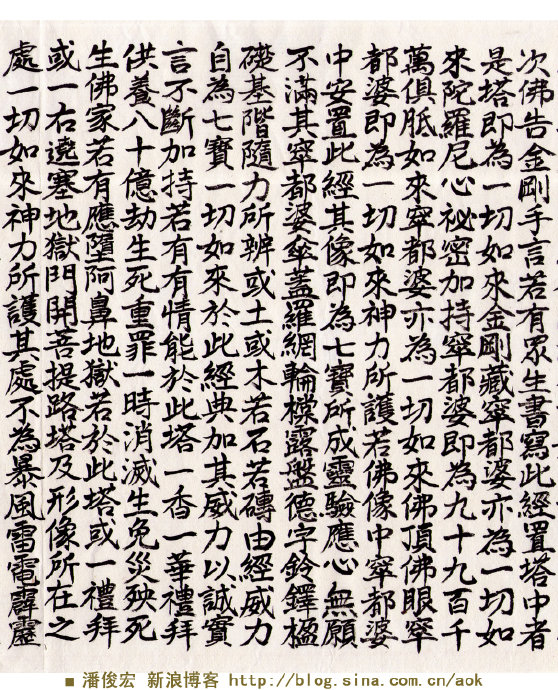 次佛告金剛手言若有眾生書寫此經置塔中者
是塔即為一切如來金剛藏窣都婆亦為一切如
來陀羅尼心祕密加持窣都婆即為九十九百千
萬俱胝如來窣都婆亦為一切如來佛頂佛眼窣
都婆即為一切如來神力所護若佛像中窣都婆
中安置此經其像即為七寶所成靈驗應心無願
不滿其窣都婆傘蓋羅網輪樘露盤德字鈴鐸楹
礎基階隨力所辨或土或木若石若磚由經威力
自為七寶一切如來於此經典加其威力以誠實
言不斷加持若有有情能於此塔一香一華禮拜
供養八十億劫生死重罪一時消滅生免災殃死
生佛家若有應墮阿鼻地獄若於此塔或一禮拜
或一右遶塞地獄門開菩提路塔及形像所在之
處一切如來神力所護其處不為暴風雷電霹靂
■ 潘俊宏 新浪博客 http://blog.sina.com.cn/aok